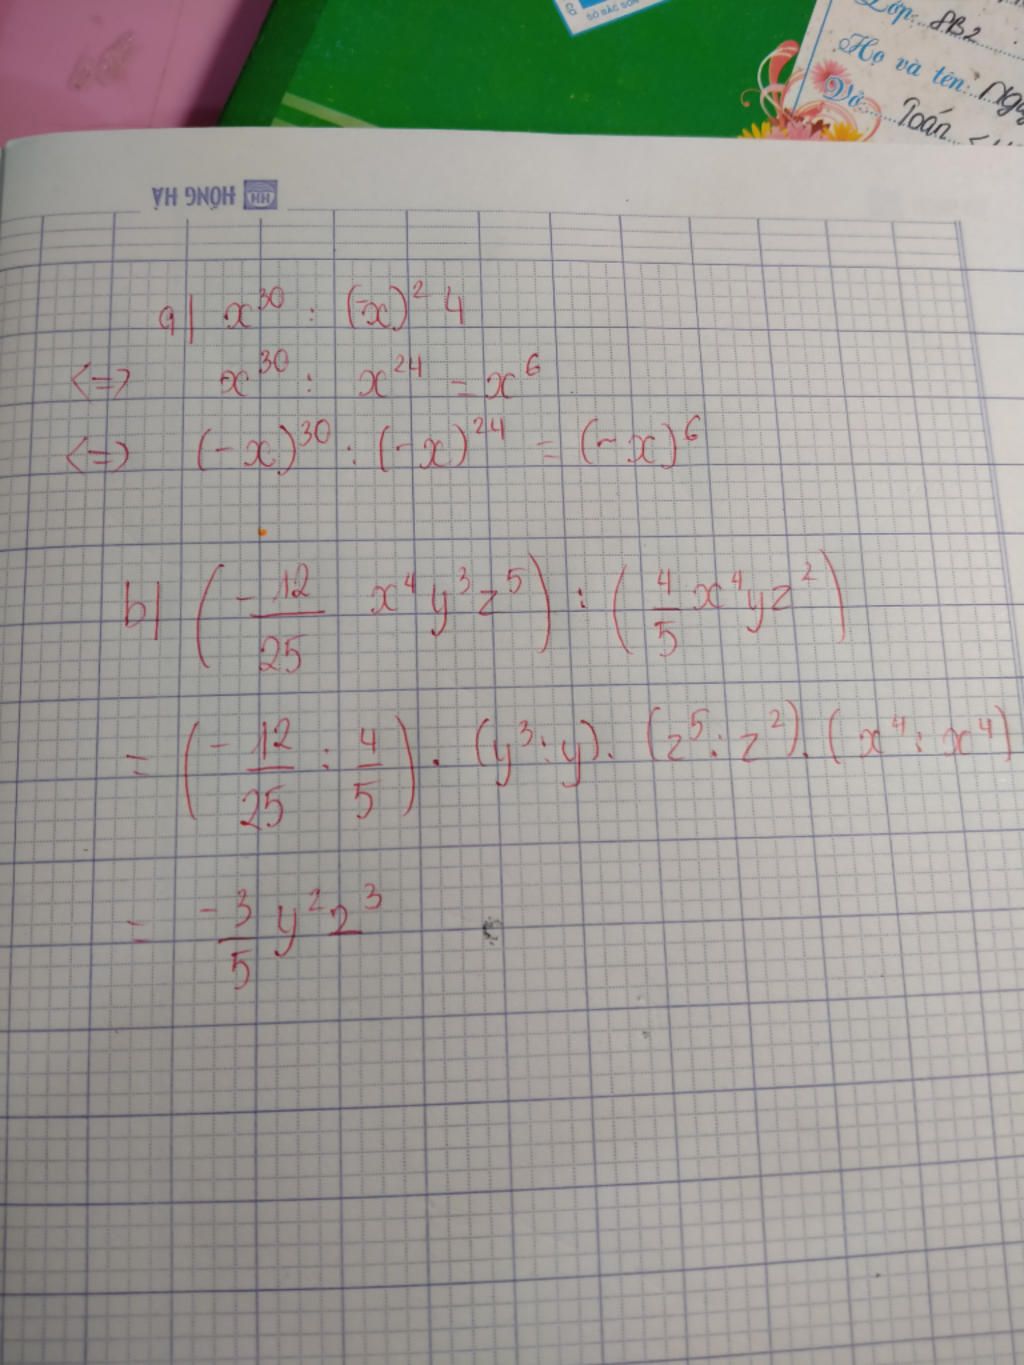 SỐ BẮC SƠN
Lớp: 8B2
Họ và tên:
Vở: Toán
HỒNG HÀ HH
a| x³⁰ : (-x)² 4
<=> x³⁰ : x²⁴ = x⁶
<=> (-x)³⁰ : (-x)²⁴ = (-x)⁶
b| (-12/25 x⁴y³z⁵) : (4/5 x⁴yz²)
= (-12/25 : 4/5) . (y³ : y) . (z⁵ : z²) . (x⁴ : x⁴)
= -3/5 y²z³